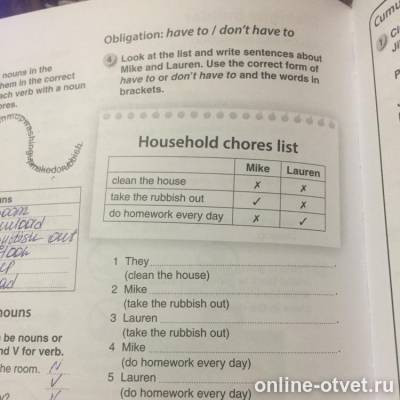 Obligation: have to / don't have to
4 Look at the list and write sentences about
Mike and Lauren. Use the correct form of
have to or don't have to and the words in
brackets.
Household chores list
Mike Lauren
clean the house ✗ ✗
take the rubbish out ✓ ✗
do homework every day ✗ ✓
1 They
(clean the house)
2 Mike
(take the rubbish out)
3 Lauren
(take the rubbish out)
4 Mike
(do homework every day)
5 Lauren
(do homework every day)
nouns in the
hem in the correct
ach verb with a noun
ores.
ns
out
nouns
be nouns or
nd V for verb.
he room. N
V
Cumu
1
online-otvet.ru